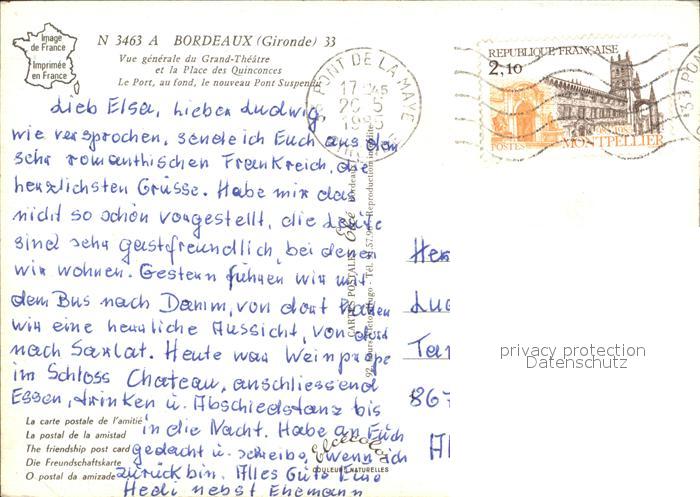 Image
de France
Imprimée
en France
N 3463 A BORDEAUX (Gironde) 33
Vue générale du Grand-Théâtre
et la Place des Quinconces
Le Port, au fond, le nouveau Pont Suspendu
PONT DE LA MAYE
17 45
20-5
1985
REPUBLIQUE FRANÇAISE
2,10
POSTES
MONTPELLIER
Lieb Elsa, lieber Ludwig,
wie versprochen, sende ich Euch aus dem
sehr romanthischen Frankreich, die
herzlichsten Grüsse. Habe mir das
nicht so schön vorgestellt, die Leute
sind sehr gastfreundlich, bei denen
wir wohnen. Gestern fuhren wir mit
dem Bus nach Damm, von dort hatten
wir eine herrliche Aussicht, von dort
nach Sarlat. Heute war Weinprobe
im Schloss Chateau, anschliessend
Essen, trinken u. Abschiedstanz bis
in die Nacht. Habe an Euch
gedacht u. schreibe, wenn ich
zurück bin. Alles Gute Eure
Hedi nebst Ehemann
La carte postale de l'amitié
La postal de la amistad
The friendship post card
Die Freundschaftskarte
O postal da amizade
CARTES POSTALES
Reproduction interdite
COULEURS NATURELLES
Her
Lud
Tan
867
Al
privacy protection
Datenschutz